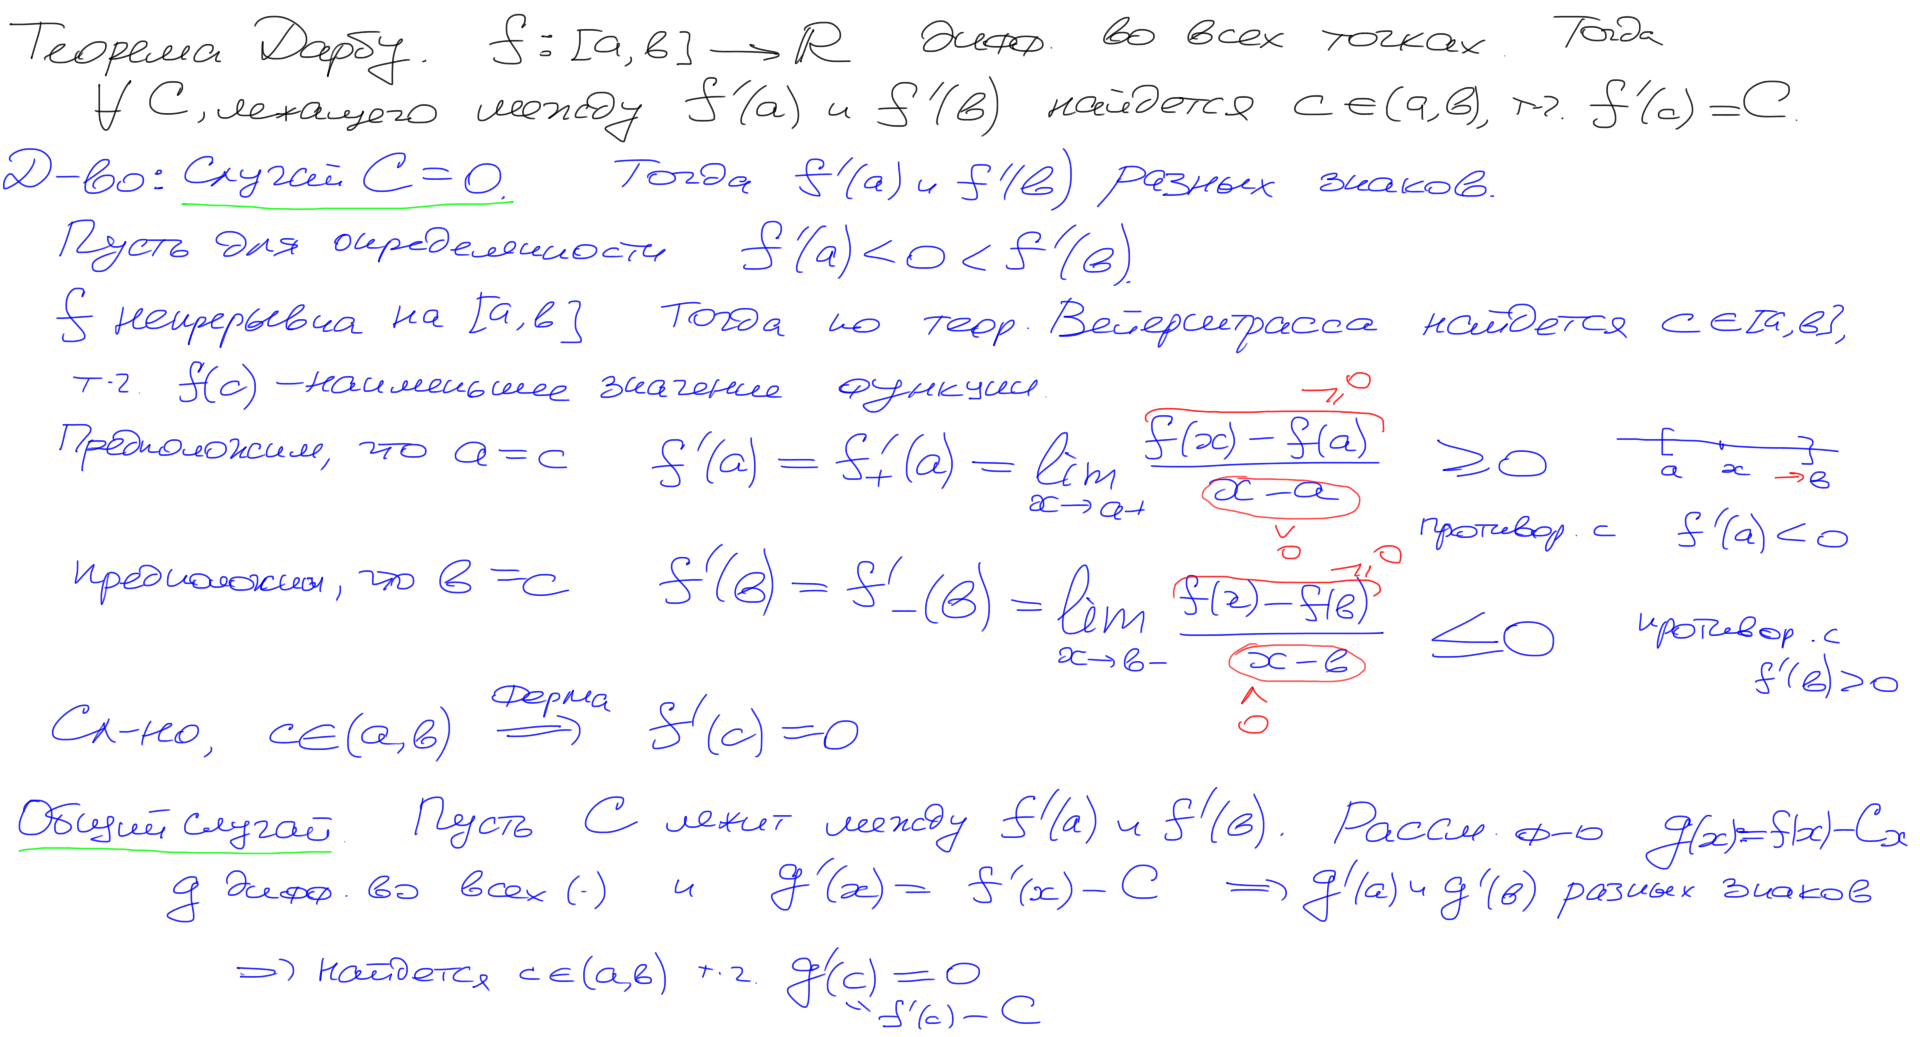 Теорема Дарбу. f: [a,b] → ℝ дифф. во всех точках. Тогда
∀ C, лежащего между f'(a) и f'(b) найдется c∈(a,b), т.ч. f'(c) = C.
Д-во: Случай C=0. Тогда f'(a) и f'(b) разных знаков.
Пусть для определенности f'(a) < 0 < f'(b).
f непрерывна на [a,b] Тогда по теор. Вейерштрасса найдется c∈[a,b],
т.ч. f(c) – наименьшее значение функции.
Предположим, что a=c f'(a) = f'₊(a) = lim_{x→a+} (f(x) – f(a))/(x – a) ≥ 0
≥ 0
> 0
a x → b
противор. с f'(a) < 0
предположим, что b=c f'(b) = f'₋(b) = lim_{x→b–} (f(x) – f(b))/(x – b) ≤ 0
≥ 0
< 0
противор. с
f'(b) > 0
Сл-но, c∈(a,b) ⟹ f'(c) = 0
Ферма
Общий случай. Пусть C лежит между f'(a) и f'(b). Рассм. ф-ю g(x) = f(x) – Cx
g дифф. во всех (·) и g'(x) = f'(x) – C ⟹ g'(a) и g'(b) разных знаков
⟹ найдется c∈(a,b) т.ч. g'(c) = 0
" f'(c) – C